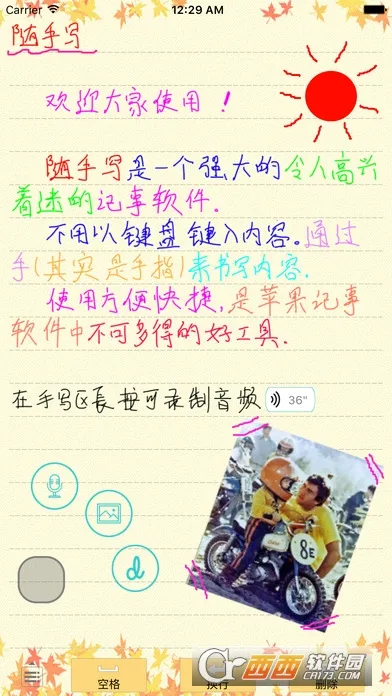 Carrier 12:29 AM
随手写
欢迎大家使用！
随手写是一个强大的令人高兴
着迷的记事软件.
不用以键盘键入内容。通过
手(其实是手指)来书写内容.
使用方便快捷,是苹果记事
软件中不可多得的好工具.
在手写区长按可录制音频 36"
d
8E
空格 换行 删除
西西软件园
CR173.COM